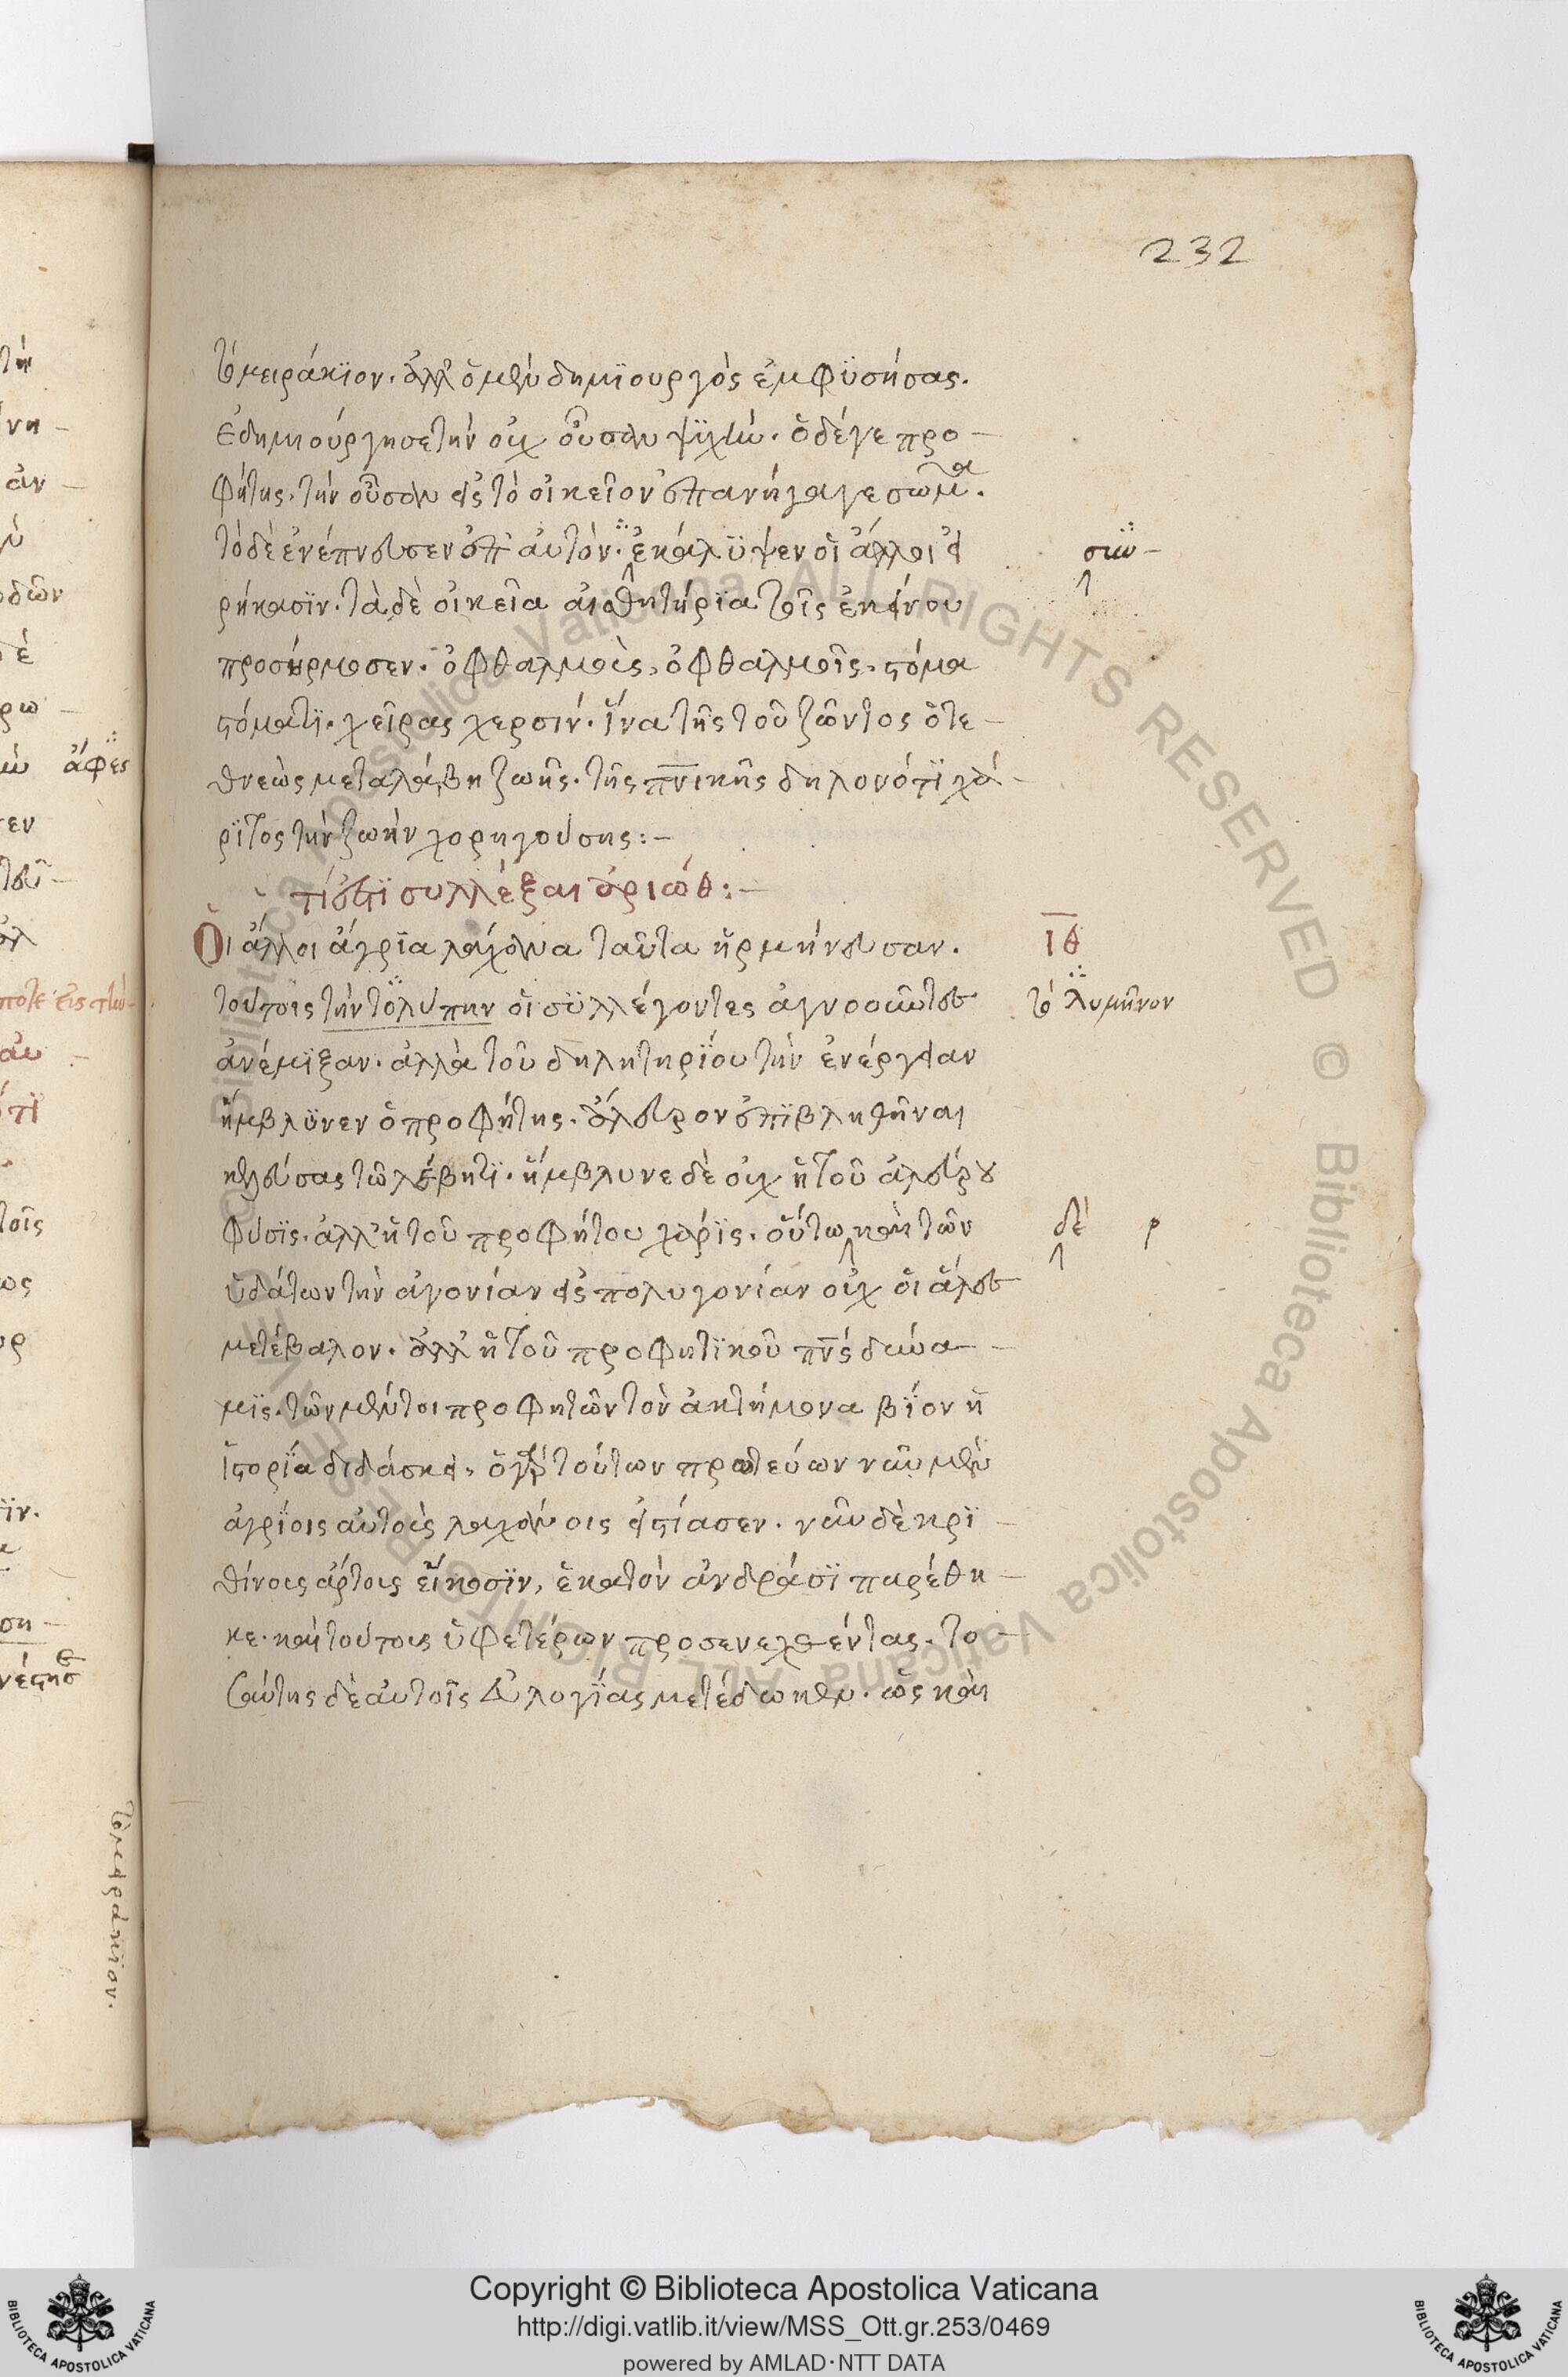 232
τὸ μειράκϊον. ἀλλ' ὁ μὲν δημϊουργὸς ἐμφϋσήσας.
ἐδημιούργησε τὴν οὐκ οὖσαν ψϋχήν. ὁ δέ γε προ-
φήτης. τὴν οὖσαν εἰς τὸ οἰκεῖον ἐπανήγαγε σῶμα.
τὸ δὲ ἐνέπνευσεν ἐπ' αὐτὸν. ἐκάλϋψεν οἱ ἄλλοι εἰ
συν-
ρήκασϊν. τὰ δὲ οἰκεῖα αἰσθητήρϊα τοῖς ἐκείνου
προσήρμοσεν. ὀφθαλμοὺς, ὀφθαλμοῖς. στόμα
στόματϊ. χεῖρας χερσίν. ἵνα τῆς τοῦ ζῶντος ὁ τε-
θνεὼς μεταλάβη ζωῆς. τῆς πνικῆς δηλονότϊ χά-
ρϊτος τὴν ζωὴν χορηγούσης:-
τί ἐστϊ συλλέξαι ἀριώθ:-
Οἱ ἄλλοι ἄγρϊα λάχανα ταῦτα ἡρμήνευσαν.
ιθ
τούτοις τὴν τολύπην οἱ σϋλλέγοντες ἀγνοοῦντες
τὸ λυμῆνον
ἀνέμϊξαν. ἀλλὰ τοῦ δηλητηρΐου τὴν ἐνέργειαν
ἤμβλϋνεν ὁ προφήτης. ἄλευρον ἐπϊβληθῆναι
κελεύσας τῶ λέβητϊ. ἤμβλυνε δὲ οὐχ ἡ τοῦ ἀλεύρου
φύσϊς. ἀλλ' ἡ τοῦ προφήτου χάρϊς. οὕτω καὶ τῶν
δὲ ρ
ὑδάτων τὴν ἀγονίαν εἰς πολυγονίαν οὐχ οἱ ἅλες
μετέβαλον. ἀλλ' ἡ τοῦ προφητϊκοῦ πνς δύνα-
μϊς. τῶν μέντοι προφητῶν τὸν ἀκτήμονα βΐον ἡ
ἱστορΐα διδάσκει, ὁ γὰρ τούτων πρωτεύων νῦν μὲν
ἀγρΐοις αὐτοὺς λαχάνοις εἱστίασεν. νῦν δὲ κρϊ-
θίνοις ἄρτοις εἴκοσϊν, ἑκατὸν ἀνδράσϊ παρέθη-
κε. καὶ τούτοις ὑφ' ἑτέρων προσενεχθέντας. το-
σαύτης δὲ αὐτοῖς εὐλογΐας μετέδωκεν. ὡς καὶ
τὸ μειράκϊον.
Copyright © Biblioteca Apostolica Vaticana
http://digi.vatlib.it/view/MSS_Ott.gr.253/0469
powered by AMLAD·NTT DATA